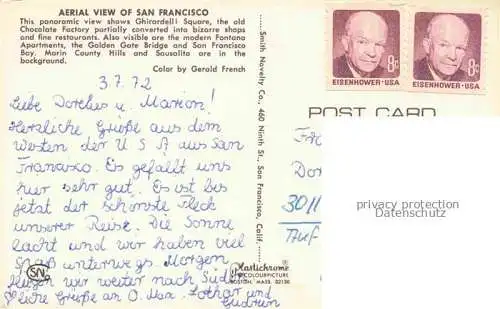 AERIAL VIEW OF SAN FRANCISCO
This panoramic view shows Ghirardelli Square, the old
Chocolate Factory partially converted into bizarre shops
and fine restaurants. Also visible are the modern Fontana
Apartments, the Golden Gate Bridge and San Francisco
Bay, Marin County Hills and Sausalito are in the
background.
Color by Gerold French
3.7.72
Liebe Dorchen u. Marion!
Herzliche Grüße aus dem
Westen der USA aus San
Francisco. Es gefällt uns
hier sehr gut. Es ist bis
jetzt der schönste Fleck
unserer Reise. Die Sonne
lacht und wir haben viel
Spaß unterwegs. Morgen
fliegen wir weiter nach
Grüße an O. Max. Lothar und
Gudrun
SN
Plastichrome®
COLOURPICTURE
BOSTON, MASS. 02130
Smith Novelty Co., 460 Ninth St., San Francisco, Calif.
8c
EISENHOWER·USA
8c
EISENHOWER·USA
POST CARD
Fr
Dor
3011
privacy protection
Datenschutz